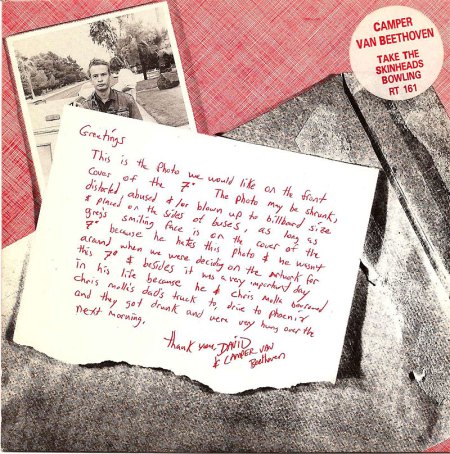 CAMPER
VAN BEETHOVEN
TAKE THE
SKINHEADS
BOWLING
RT 161
Greetings
This is the photo we would like on the front
cover of the 7" The photo may be shrunk,
distorted abused &/or blown up to billboard size
& placed on the sides of buses, as long as
greg's smiling face is on the cover of the
7" because he hates this photo & he wasnt
around when we were deciding on the artwork for
this 7" & besides it was a very important day
in his life because he & chris molla borrowed
chris molla's dad's truck to drive to phoenix
and they got drunk and were very hung over the
next morning.
thank you, DAVID
& CAMPER VAN
Beethoven